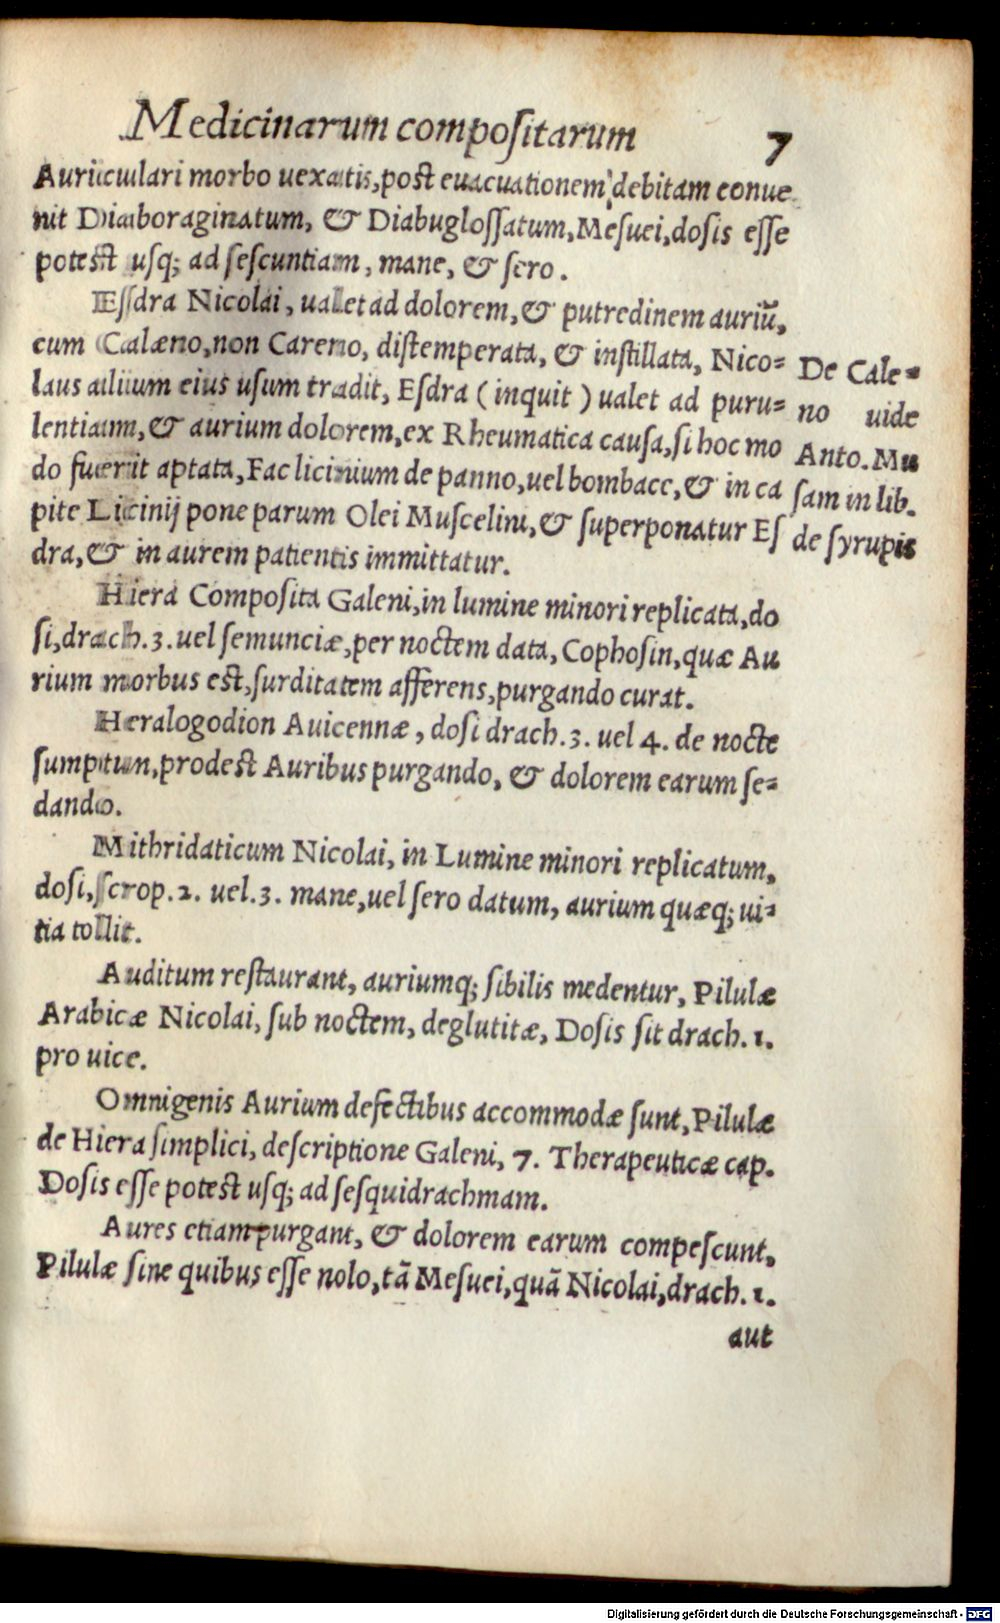 Medicinarum compoſitarum 7
Auriculari morbo uexatis, poſt euacuationem debitam conue
nit Diaboraginatum, & Diabugloſſatum, Meſuei, doſis eſſe
poteſt uſq; ad ſeſcuntiam, mane, & ſero.
Eſſdra Nicolai, ualet ad dolorem, & putredinem auriũ,
cum Calæno, non Careno, diſtemperata, & inſtillata, Nico=
laus alium eius uſum tradit, Eſdra (inquit) ualet ad puru=
lentiam, & aurium dolorem, ex Rheumatica cauſa, ſi hoc mo
do fuerit aptata, Fac licinium de panno, uel bombace, & in ca
pite Licinij pone parum Olei Muscelini, & ſuperponatur Eſ
dra, & in aurem patientis immittatur.
De Cale=
no uide
Anto. Mu
ſam in lib.
de ſyrupis
Hiera Compoſita Galeni, in lumine minori replicata, do
ſi, drach. 3. uel ſemunciæ, per noctem data, Cophoſin, quæ Au
rium morbus eſt, ſurditatem afferens, purgando curat.
Heralogodion Auicennæ, doſi drach. 3. uel 4. de nocte
ſumptum, prodeſt Auribus purgando, & dolorem earum ſe=
dando.
Mithridaticum Nicolai, in Lumine minori replicatum,
doſi, ſcrop. 2. uel. 3. mane, uel ſero datum, aurium quæq; ui=
tia tollit.
Auditum reſtaurant, auriumq; ſibilis medentur, Pilulæ
Arabicæ Nicolai, ſub noctem, deglutitæ, Doſis ſit drach. 1.
pro uice.
Omnigenis Aurium defectibus accommodæ ſunt, Pilulæ
de Hiera ſimplici, deſcriptione Galeni, 7. Therapeuticæ cap.
Doſis eſſe poteſt uſq; ad ſeſquidrachmam.
Aures etiam purgant, & dolorem earum compeſcunt,
Pilulæ ſine quibus eſſe nolo, tã Meſuei, quã Nicolai, drach. 1.
aut
Digitalisierung gefördert durch die Deutsche Forschungsgemeinschaft - DFG